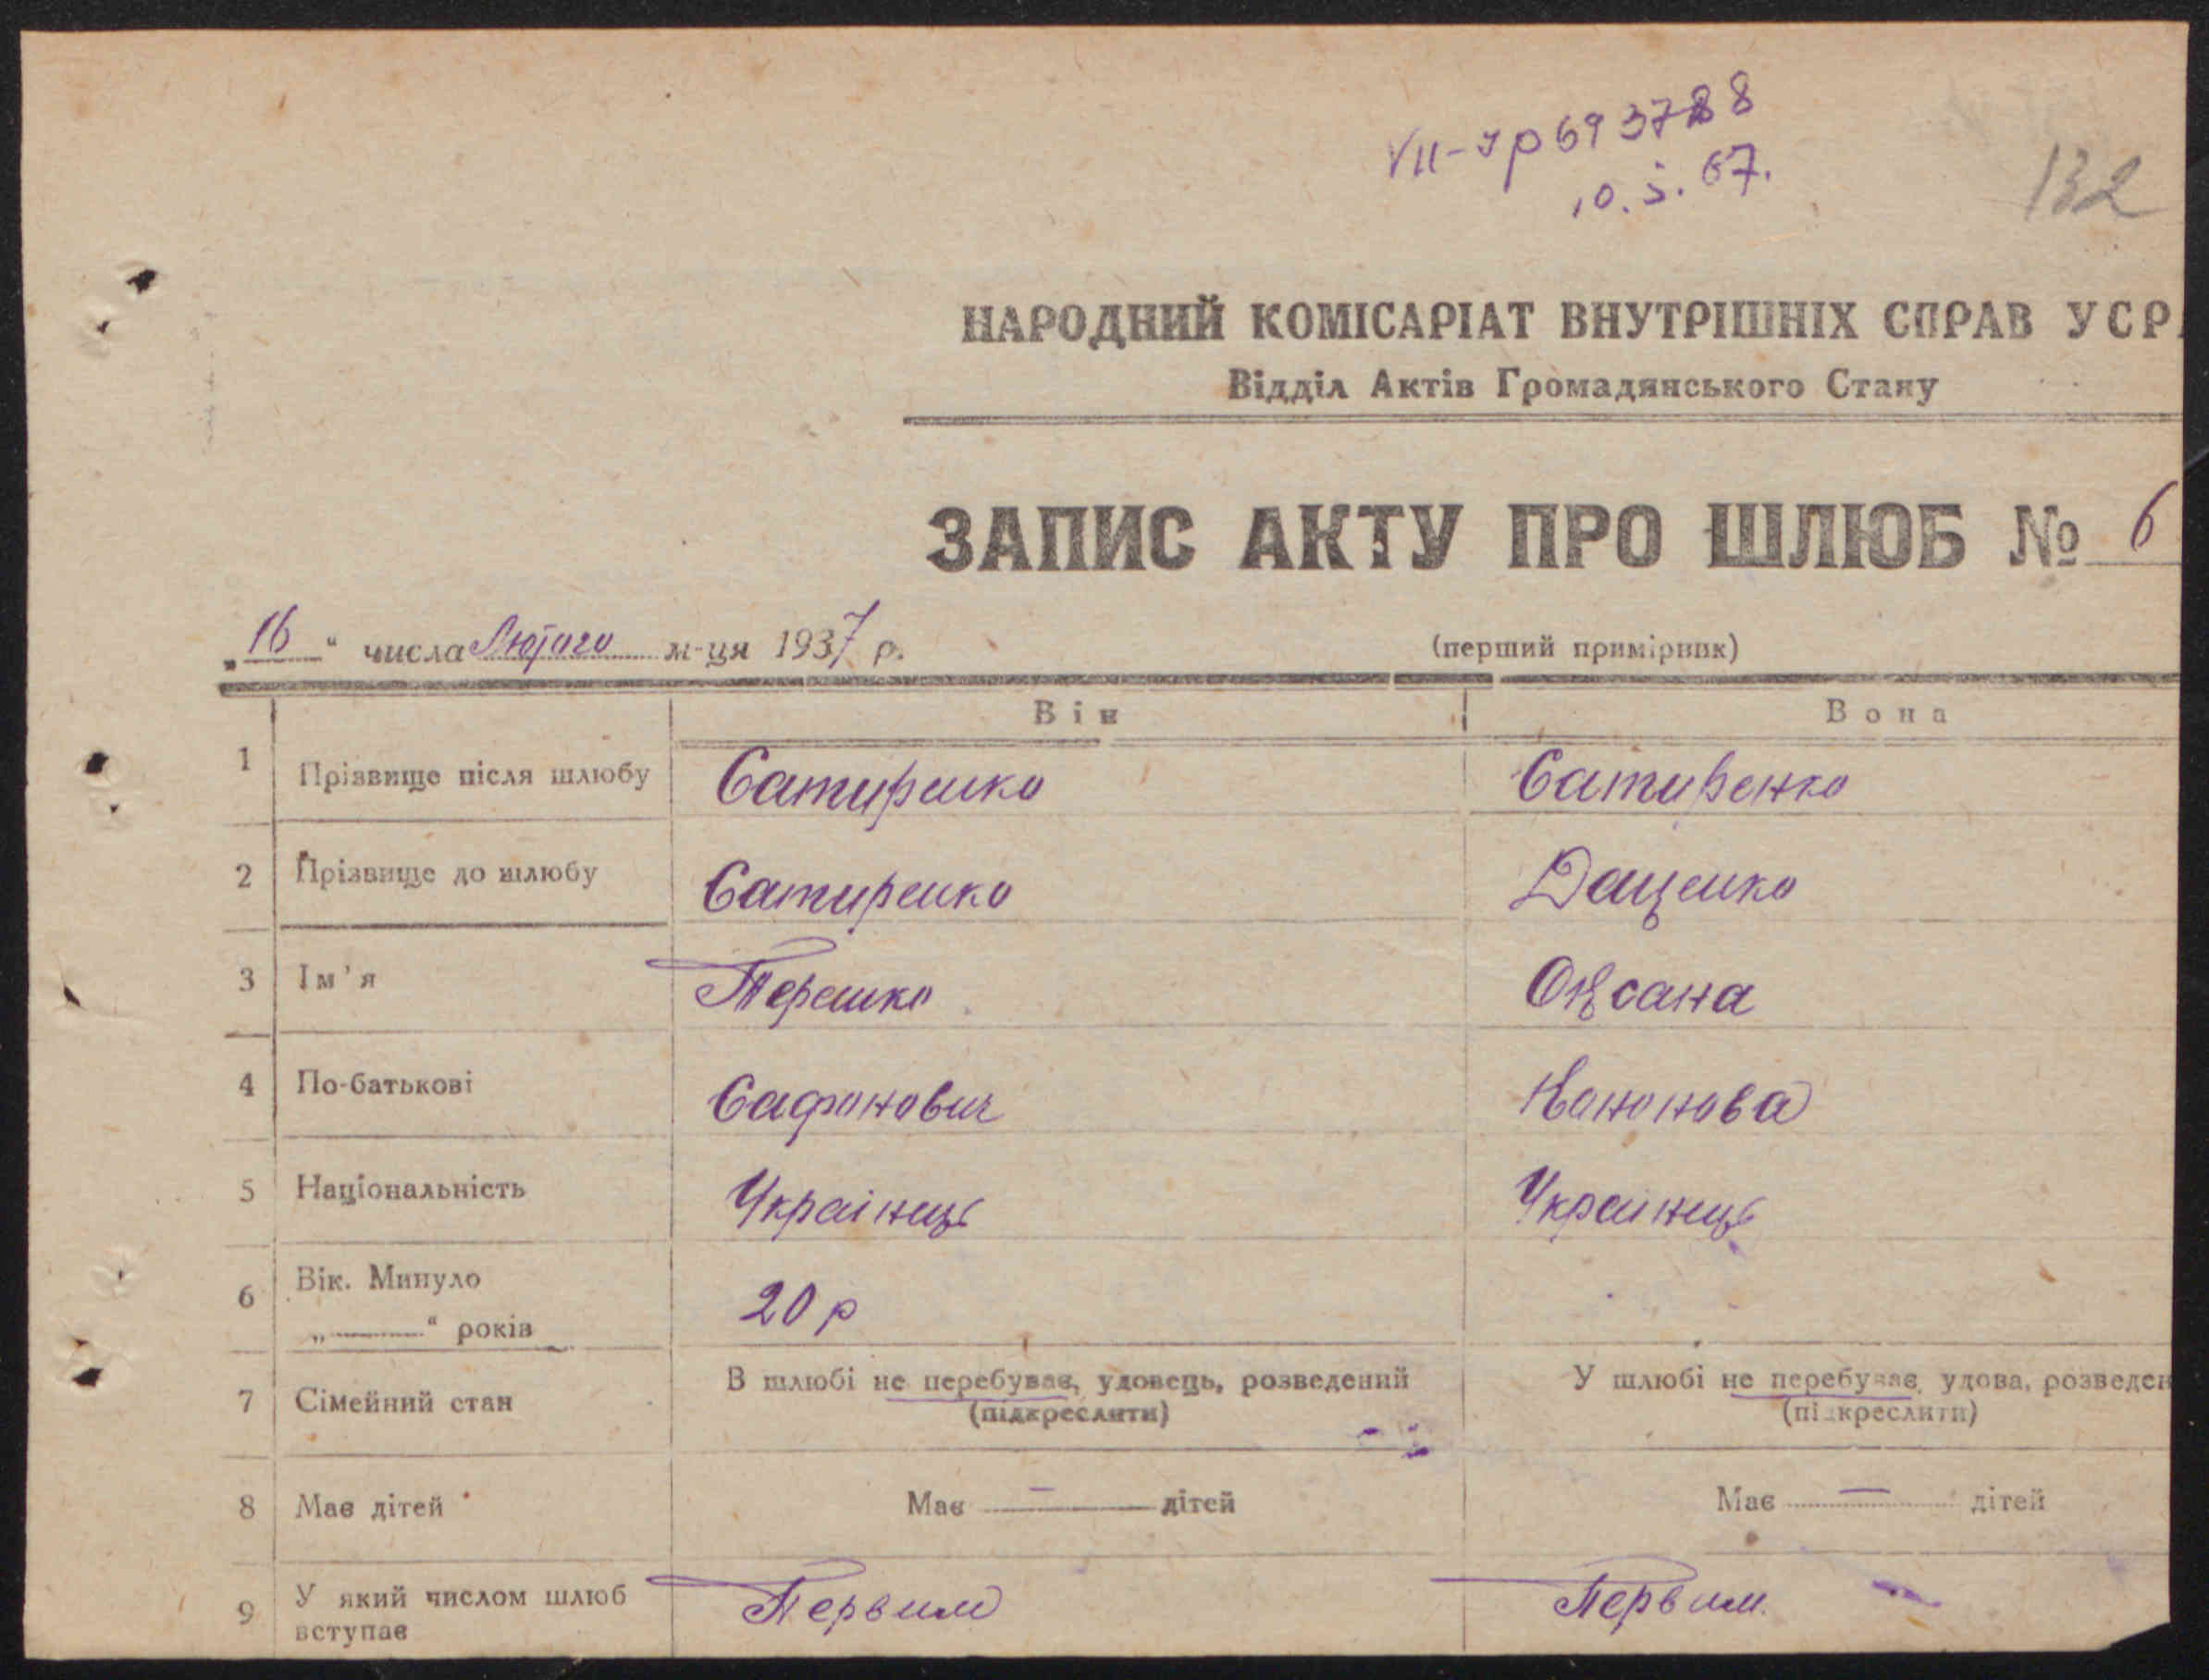 VII-УР 693788
10.5.67.
132
НАРОДНИЙ КОМІСАРІАТ ВНУТРІШНІХ СПРАВ УСР
Відділ Актів Громадянського Стану
ЗАПИС АКТУ ПРО ШЛЮБ № 6
„16" числа Лютого м-ця 1937 р.
(перший примірник)
Він Вона
1 Прізвище після шлюбу Сатиренко Сатиренко
2 Прізвище до шлюбу Сатиренко Даценко
3 Ім'я Терешко Оксана
4 По-батькові Сафонович Кононова
5 Національність Українець Украинець
6 Вік. Минуло
„———" років 20 р
7 Сімейний стан В шлюбі не перебуває, удовець, розведений У шлюбі не перебуває, удова, розведен
(підкреслити) (підкреслити)
8 Має дітей Має — дітей Має — дітей
9 У який числом шлюб вступає Первим Первим